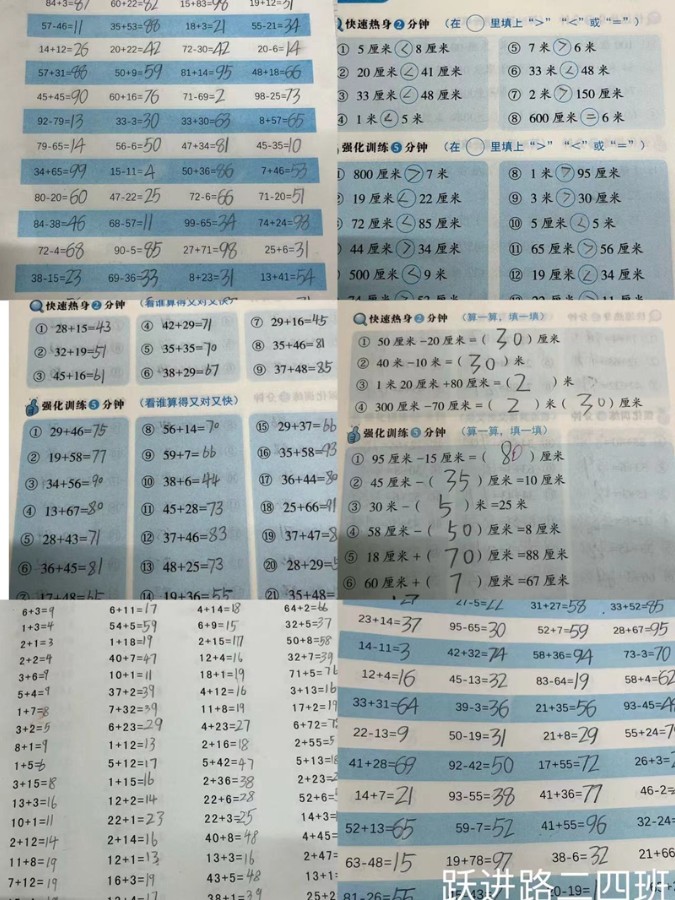 84+3=87 60+22=82 15+83=98 19+12=31
57-46=11 35+53=88 18+3=21 55-21=34
14+12=26 20+22=42 72-30=42 20-6=14
57+31=88 50+9=59 81+14=95 48+18=66
45+45=90 60+16=76 71-69=2 98-25=73
92-79=13 33-3=30 33+30=63 8+57=65
79-65=14 56-6=50 47+34=81 45-35=10
34+65=99 15-11=4 50+36=86 7+46=53
80-20=60 47-22=25 72-6=66 71-20=51
84-38=46 68-57=11 99-65=34 74+24=98
72-4=68 90-5=85 27+71=98 25+6=31
38-15=23 69-36=33 8+23=31 13+41=54
快速热身2分钟 (在○里填上“>”“<”或“=”)
① 5厘米<8厘米 ⑤ 7米>6米
② 20厘米<41厘米 ⑥ 33米<48米
③ 33厘米<48厘米 ⑦ 2米>150厘米
④ 1米<5米 ⑧ 600厘米=6米
强化训练5分钟 (在○里填上“>”“<”或“=”)
① 800厘米>7米 ⑧ 1米>95厘米
19厘米<22厘米 ⑨ 3米>30厘米
72厘米<85厘米 ⑩ 5厘米<5米
44厘米>34厘米 ⑪ 65厘米>56厘米
500厘米<9米 ⑫ 19厘米<34厘米
快速热身2分钟 (看谁算得又对又快)
① 28+15=43 ④ 42+29=71 ⑦ 29+16=45
② 32+19=51 ⑤ 35+35=70 ⑧ 35+46=81
③ 45+16=61 ⑥ 38+29=67 ⑨ 37+48=85
强化训练5分钟 (看谁算得又对又快)
① 29+46=75 ⑧ 56+14=70 ⑮ 29+37=66
② 19+58=77 ⑨ 59+7=66 ⑯ 35+58=93
③ 34+56=90 ⑩ 38+6=44 ⑰ 36+44=80
④ 13+67=80 ⑪ 45+28=73 ⑱ 25+66=91
⑤ 28+43=71 ⑫ 37+46=83 ⑲ 37+47=8
⑥ 36+45=81 ⑬ 48+25=73 ⑳ 28+29=
⑦ 17+48=65 ⑭ 19+36=55 ㉑ 35+48=
快速热身2分钟 (算一算,填一填)
① 50厘米-20厘米=(30)厘米
② 40米-10米=(30)米
③ 1米20厘米+80厘米=(2)米
④ 300厘米-70厘米=(2)米(30)厘米
强化训练5分钟 (算一算,填一填)
① 95厘米-15厘米=(80)厘米
② 45厘米-(35)厘米=10厘米
③ 30米-(5)米=25米
④ 58厘米-(50)厘米=8厘米
⑤ 18厘米+(70)厘米=88厘米
⑥ 60厘米+(7)厘米=67厘米
6+3=9 6+11=17 4+14=18 64+2=66
1+3=4 54+5=59 6+9=15 32+5=37
2+1=3 1+18=19 2+15=17 50+8=58
2+2=4 40+7=47 12+4=16 32+7=39
3+6=9 10+1=11 18+1=19 71+5=76
5+4=9 37+2=39 4+12=16 3+13=16
1+7=8 7+32=39 11+8=19 17+2=19
3+2=5 6+23=29 4+23=27 6+72=
8+1=9 1+12=13 2+16=18 2+55=5
1+5=6 5+12=17 5+42=47 5+13=18
3+15=18 1+15=16 2+36=38 2+23=
13+3=16 12+2=14 22+6=28 52+6=
10+1=11 22+1=23 22+3=25 14+3=
2+12=14 2+14=16 40+8=48 4+45=
11+8=19 12+1=13 13+3=16 2+47=
7+12=19 16+3=19 43+5=48 13+1
38+1=39 25+2
27-5=22 31+27=58 33+52=85
23+14=37 95-65=30 52+7=59 28+67=95
14-11=3 42+32=74 58+36=94 73-3=70
12+4=16 45-13=32 83-64=19 58+4=62
33+31=64 39-3=36 21+35=56 93-45=4
22-13=9 50-19=31 21+8=29 55+24=7
41+28=69 92-42=50 17+55=72 26+3=
14+7=21 93-55=38 41+36=77 46-2=
52+13=65 59-7=52 41+55=96 32-24=
63-48=15 19+78=97 38-6=32 21+66
81-26=55 20-19=1
跃进路二四班